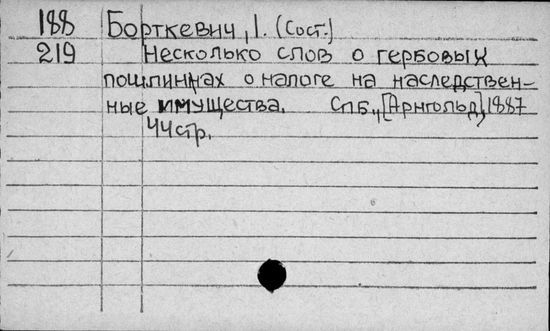 188 Борткевич, I. (Сост.)
219 Несколько слов о гербовых
пошлинах о налоге на наследствен-
ные имущества. Спб., [Арнгольд], 1887
44 стр.